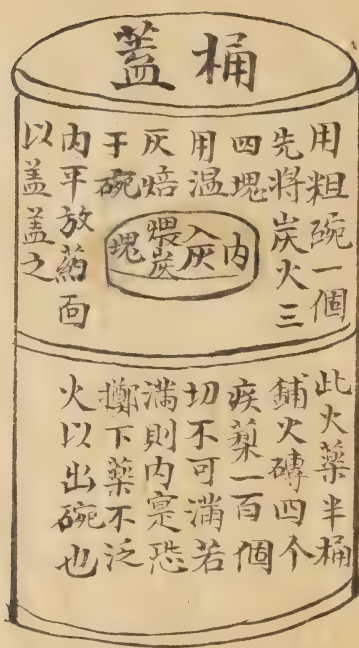 桶蓋
用粗碗一個
先將炭火三
四塊
用温
灰焙
于碗
内平放葯面
以盖盖之
内
入灰
煨炭
塊
此火薬半桶
鋪火磚四个
疾蔾一百個
切不可滿若
滿則内寔恐
擲下薬不泛
火以出碗也